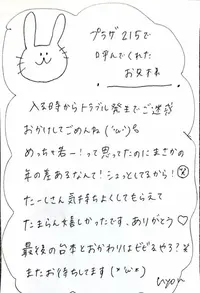 プラザ215で
呼んでくれた
お兄様
入る時からトラブル発生でご迷惑
おかけしてごめんね(´;ω;`)
めっちゃ若ー!って思ってたのにまさかの
年の差あるなんて!シュッとしてるから!
たーしさん気持ちよくしてもらえて
たまらん嬉しかったです、ありがとう♡
最後の台本とおかわりはせせるやろ?
またお待ちしてます(*´ω`*)